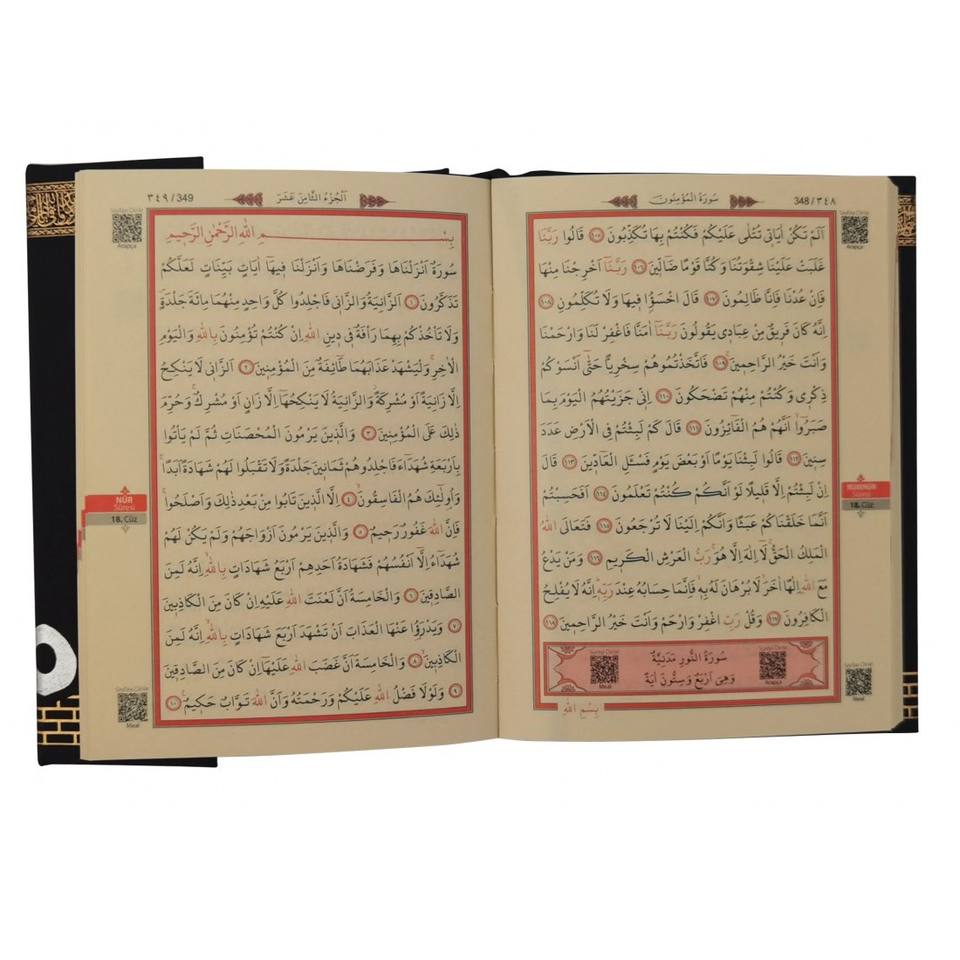 348/٣٤٨
سُورَةُ الْمُؤْمِنُونَ
اَلَمْ تَكُنْ اٰيَات۪ي تُتْلٰى عَلَيْكُمْ فَكُنْتُمْ بِهَا تُكَذِّبُونَ ﴿١٠٥﴾ قَالُوا رَبَّنَا
غَلَبَتْ عَلَيْنَا شِقْوَتُنَا وَكُنَّا قَوْمًا ضَٓالّ۪ينَ ﴿١٠٦﴾ رَبَّنَٓا اَخْرِجْنَا مِنْهَا
فَاِنْ عُدْنَا فَاِنَّا ظَالِمُونَ ﴿١٠٧﴾ قَالَ اخْسَؤُ۫ا ف۪يهَا وَلَا تُكَلِّمُونِ ﴿١٠٨﴾
اِنَّهُ كَانَ فَر۪يقٌ مِنْ عِبَاد۪ي يَقُولُونَ رَبَّنَٓا اٰمَنَّا فَاغْفِرْ لَنَا وَارْحَمْنَا
وَاَنْتَ خَيْرُ الرَّاحِم۪ينَ ﴿١٠٩﴾ فَاتَّخَذْتُمُوهُمْ سِخْرِيًّا حَتّٰٓى اَنْسَوْكُمْ
ذِكْر۪ي وَكُنْتُمْ مِنْهُمْ تَضْحَكُونَ ﴿١١٠﴾ اِنّ۪ي جَزَيْتُهُمُ الْيَوْمَ بِمَا
صَبَرُٓوا اَنَّهُمْ هُمُ الْفَٓائِزُونَ ﴿١١١﴾ قَالَ كَمْ لَبِثْتُمْ فِي الْاَرْضِ عَدَدَ
سِن۪ينَ ﴿١١٢﴾ قَالُوا لَبِثْنَا يَوْمًا اَوْ بَعْضَ يَوْمٍ فَسْـَٔلِ الْعَٓادّ۪ينَ ﴿١١٣﴾ قَالَ
اِنْ لَبِثْتُمْ اِلَّا قَل۪يلًا لَوْ اَنَّكُمْ كُنْتُمْ تَعْلَمُونَ ﴿١١٤﴾ اَفَحَسِبْتُمْ
اَنَّمَا خَلَقْنَاكُمْ عَبَثًا وَاَنَّكُمْ اِلَيْنَا لَا تُرْجَعُونَ ﴿١١٥﴾ فَتَعَالَى اللّٰهُ
الْمَلِكُ الْحَقُّۚ لَٓا اِلٰهَ اِلَّا هُوَۚ رَبُّ الْعَرْشِ الْكَر۪يمِ ﴿١١٦﴾ وَمَنْ يَدْعُ
مَعَ اللّٰهِ اِلٰهًا اٰخَرَۙ لَا بُرْهَانَ لَهُ بِه۪ۙ فَاِنَّمَا حِسَابُهُ عِنْدَ رَبِّه۪ۜ اِنَّهُ لَا يُفْلِحُ
الْكَافِرُونَ ﴿١١٧﴾ وَقُلْ رَبِّ اغْفِرْ وَارْحَمْ وَاَنْتَ خَيْرُ الرَّاحِم۪ينَ ﴿١١٨﴾
سُورَةُ النُّورِ مَدَنِيَّةٌ
وَهِيَ اَرْبَعٌ وَسِتُّونَ اٰيَةً
بِسْمِ اللّٰهِ
Arapça
Meal
Sûresi
18. Cüz
349/٣٤٩
اَلْجُزْءُ الثَّامِنَ عَشَرَ
بِسْمِ اللّٰهِ الرَّحْمٰنِ الرَّح۪يمِ
سُورَةٌ اَنْزَلْنَاهَا وَفَرَضْنَاهَا وَاَنْزَلْنَا ف۪يهَٓا اٰيَاتٍ بَيِّنَاتٍ لَعَلَّكُمْ
تَذَكَّرُونَ ﴿١﴾ اَلزَّانِيَةُ وَالزَّان۪ي فَاجْلِدُوا كُلَّ وَاحِدٍ مِنْهُمَا مِائَةَ جَلْدَةٍۖ
وَلَا تَأْخُذْكُمْ بِهِمَا رَأْفَةٌ ف۪ي د۪ينِ اللّٰهِ اِنْ كُنْتُمْ تُؤْمِنُونَ بِاللّٰهِ وَالْيَوْمِ
الْاٰخِرِۚ وَلْيَشْهَدْ عَذَابَهُمَا طَٓائِفَةٌ مِنَ الْمُؤْمِن۪ينَ ﴿٢﴾ اَلزَّان۪ي لَا يَنْكِحُ
اِلَّا زَانِيَةً اَوْ مُشْرِكَةًۘ وَالزَّانِيَةُ لَا يَنْكِحُهَٓا اِلَّا زَانٍ اَوْ مُشْرِكٌۚ وَحُرِّمَ
ذٰلِكَ عَلَى الْمُؤْمِن۪ينَ ﴿٣﴾ وَالَّذ۪ينَ يَرْمُونَ الْمُحْصَنَاتِ ثُمَّ لَمْ يَأْتُوا
بِاَرْبَعَةِ شُهَدَٓاءَ فَاجْلِدُوهُمْ ثَمَان۪ينَ جَلْدَةً وَلَا تَقْبَلُوا لَهُمْ شَهَادَةً اَبَدًاۚ
وَاُو۬لٰٓئِكَ هُمُ الْفَاسِقُونَۙ ﴿٤﴾ اِلَّا الَّذ۪ينَ تَابُوا مِنْ بَعْدِ ذٰلِكَ وَاَصْلَحُواۚ
فَاِنَّ اللّٰهَ غَفُورٌ رَح۪يمٌ ﴿٥﴾ وَالَّذ۪ينَ يَرْمُونَ اَزْوَاجَهُمْ وَلَمْ يَكُنْ لَهُمْ
شُهَدَٓاءُ اِلَّٓا اَنْفُسُهُمْ فَشَهَادَةُ اَحَدِهِمْ اَرْبَعُ شَهَادَاتٍ بِاللّٰهِۙ اِنَّهُ لَمِنَ
الصَّادِق۪ينَ ﴿٦﴾ وَالْخَامِسَةُ اَنَّ لَعْنَتَ اللّٰهِ عَلَيْهِ اِنْ كَانَ مِنَ الْكَاذِب۪ينَ
﴿٧﴾ وَيَدْرَؤُ۬ا عَنْهَا الْعَذَابَ اَنْ تَشْهَدَ اَرْبَعَ شَهَادَاتٍ بِاللّٰهِۙ اِنَّهُ لَمِنَ
الْكَاذِب۪ينَۙ ﴿٨﴾ وَالْخَامِسَةَ اَنَّ غَضَبَ اللّٰهِ عَلَيْهَٓا اِنْ كَانَ مِنَ الصَّادِق۪ينَ
﴿٩﴾ وَلَوْلَا فَضْلُ اللّٰهِ عَلَيْكُمْ وَرَحْمَتُهُ وَاَنَّ اللّٰهَ تَوَّابٌ حَك۪يمٌ ﴿١٠﴾
Arapça
NÛR
Sûresi
18. Cüz
Meal